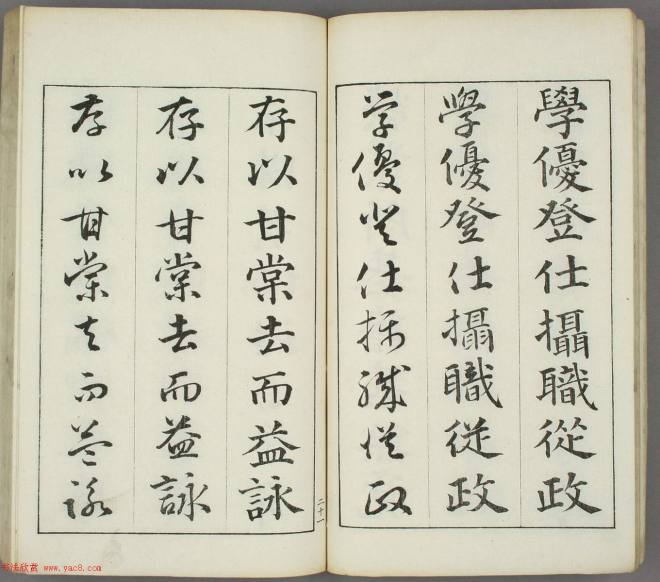 學優登仕攝職從政
學優登仕攝職從政
学優登仕攝職從政
存以甘棠去而益詠
存以甘棠去而益詠
存以甘棠去而益詠
二十一
书法欣赏 www.yac8.com